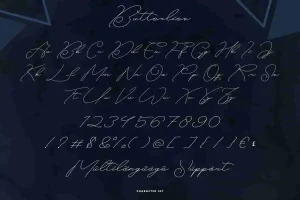 Butterlien
Aa Bb Cc Dd Ee Ff Gg Hh Ii Jj
Kk Ll Mm Nn Oo Pp Qq Rr Ss
Tt Uu Vv Ww Xx Yy Zz
1234567890
Multilanguage Support
CHARACTER SET